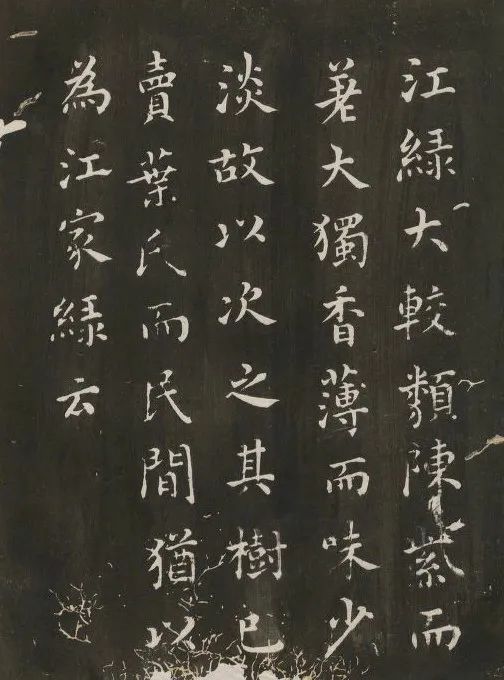 江綠大較類陳紫而
差大獨香薄而味少
淡故以次之其樹已
賣葉氏而民間猶以
為江家綠云